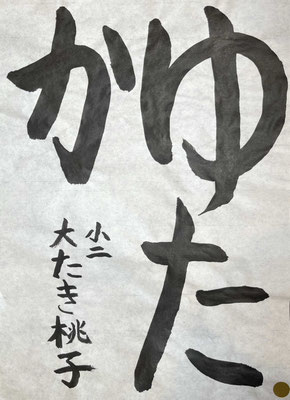 ゆた
か
小二
大たき桃子